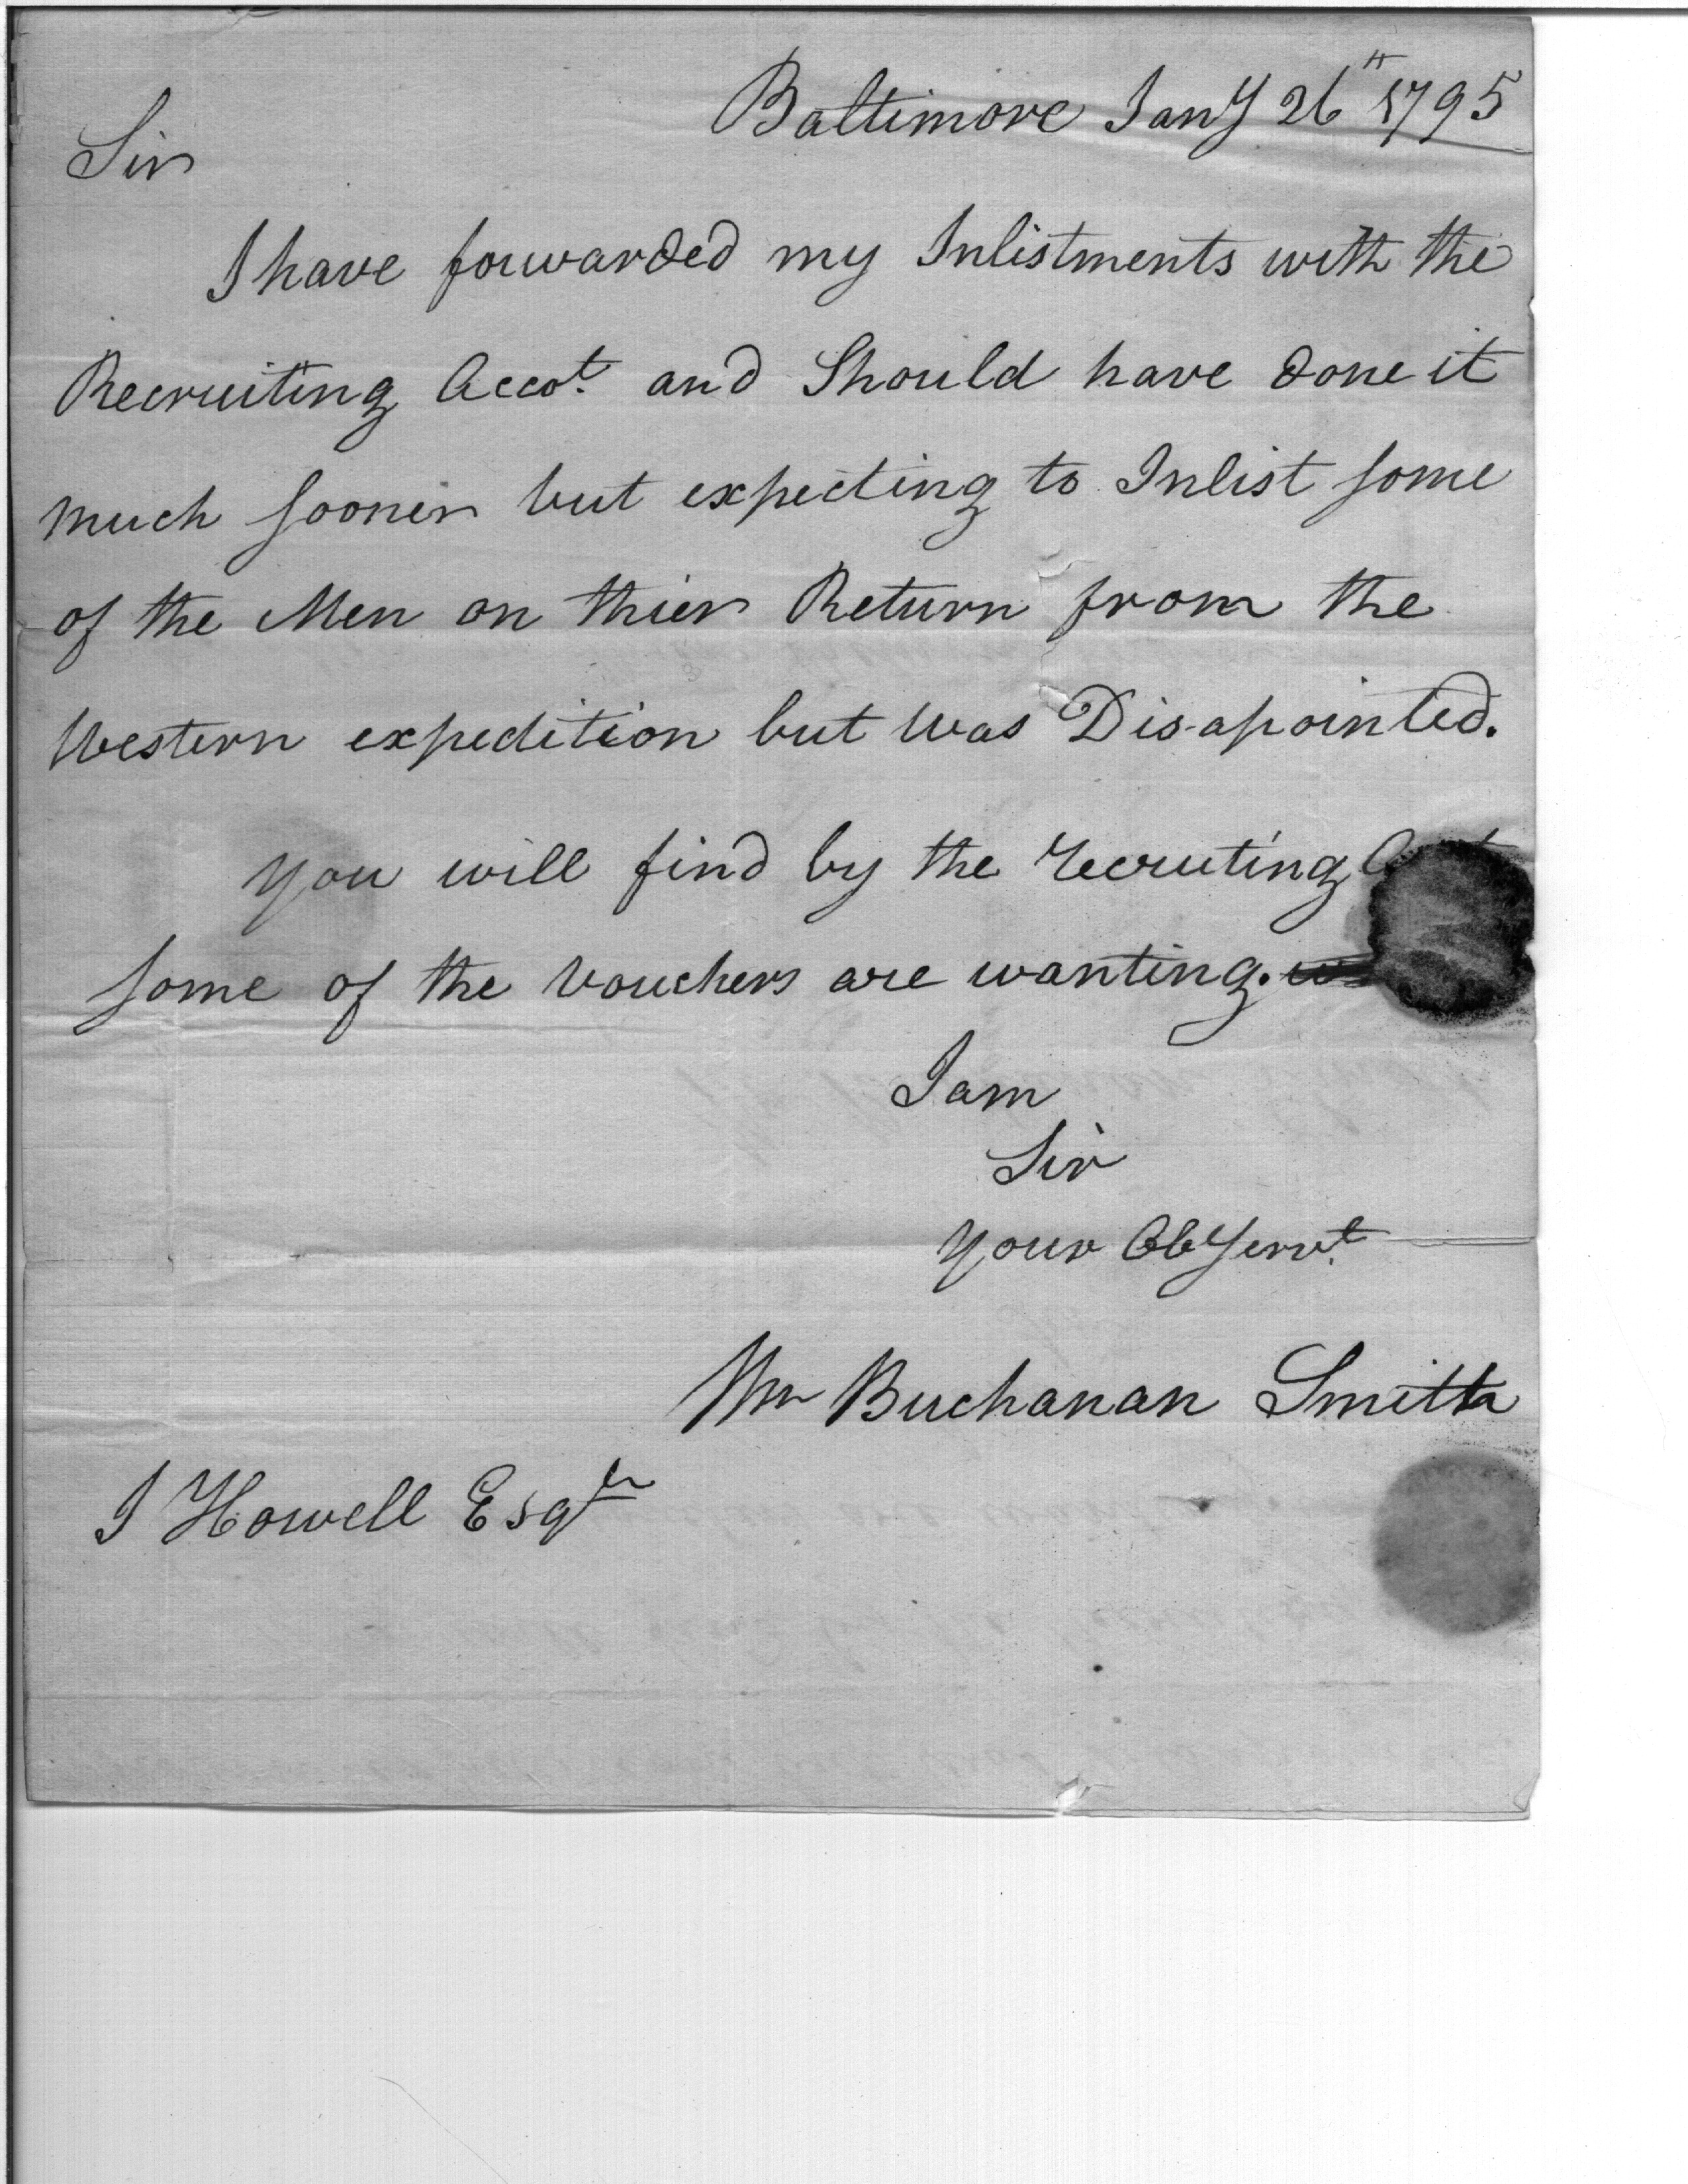 Baltimore Jany 26th 1795
Sir
I have forwarded my Inlistments with the
Recruiting Accot. and Should have done it
much sooner but expecting to Inlist some
of the Men on thier Return from the
Western expedition but was Disapointed.
you will find by the recruting
some of the vouchers are wanting.
I am
Sir
your Ob Servt.
Wm Buchanan Smith
J Howell Esqr